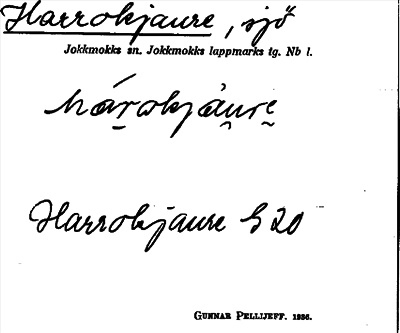 Harrokjaure, sjö
Jokkmokks sn. Jokkmokks lappmarks tg. Nb l.
hár̲okjàu̯re̯
Harrokjaure G 20
GUNNAR PELLIJEFF. 1936.